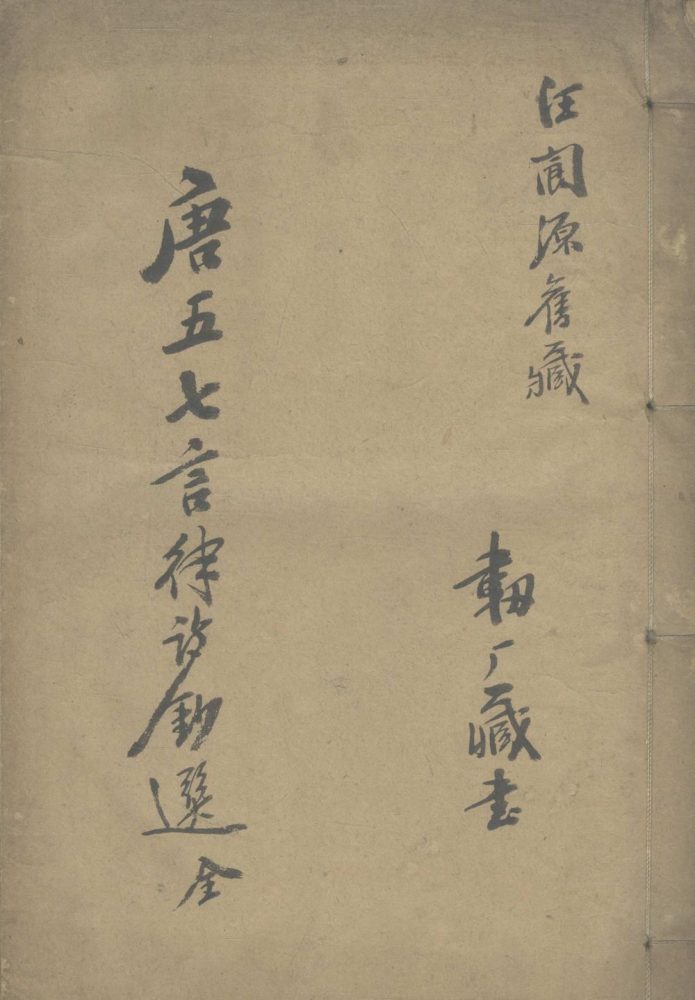 汪閬源舊藏
軔厂藏書
唐五七言律詩鈔選 全